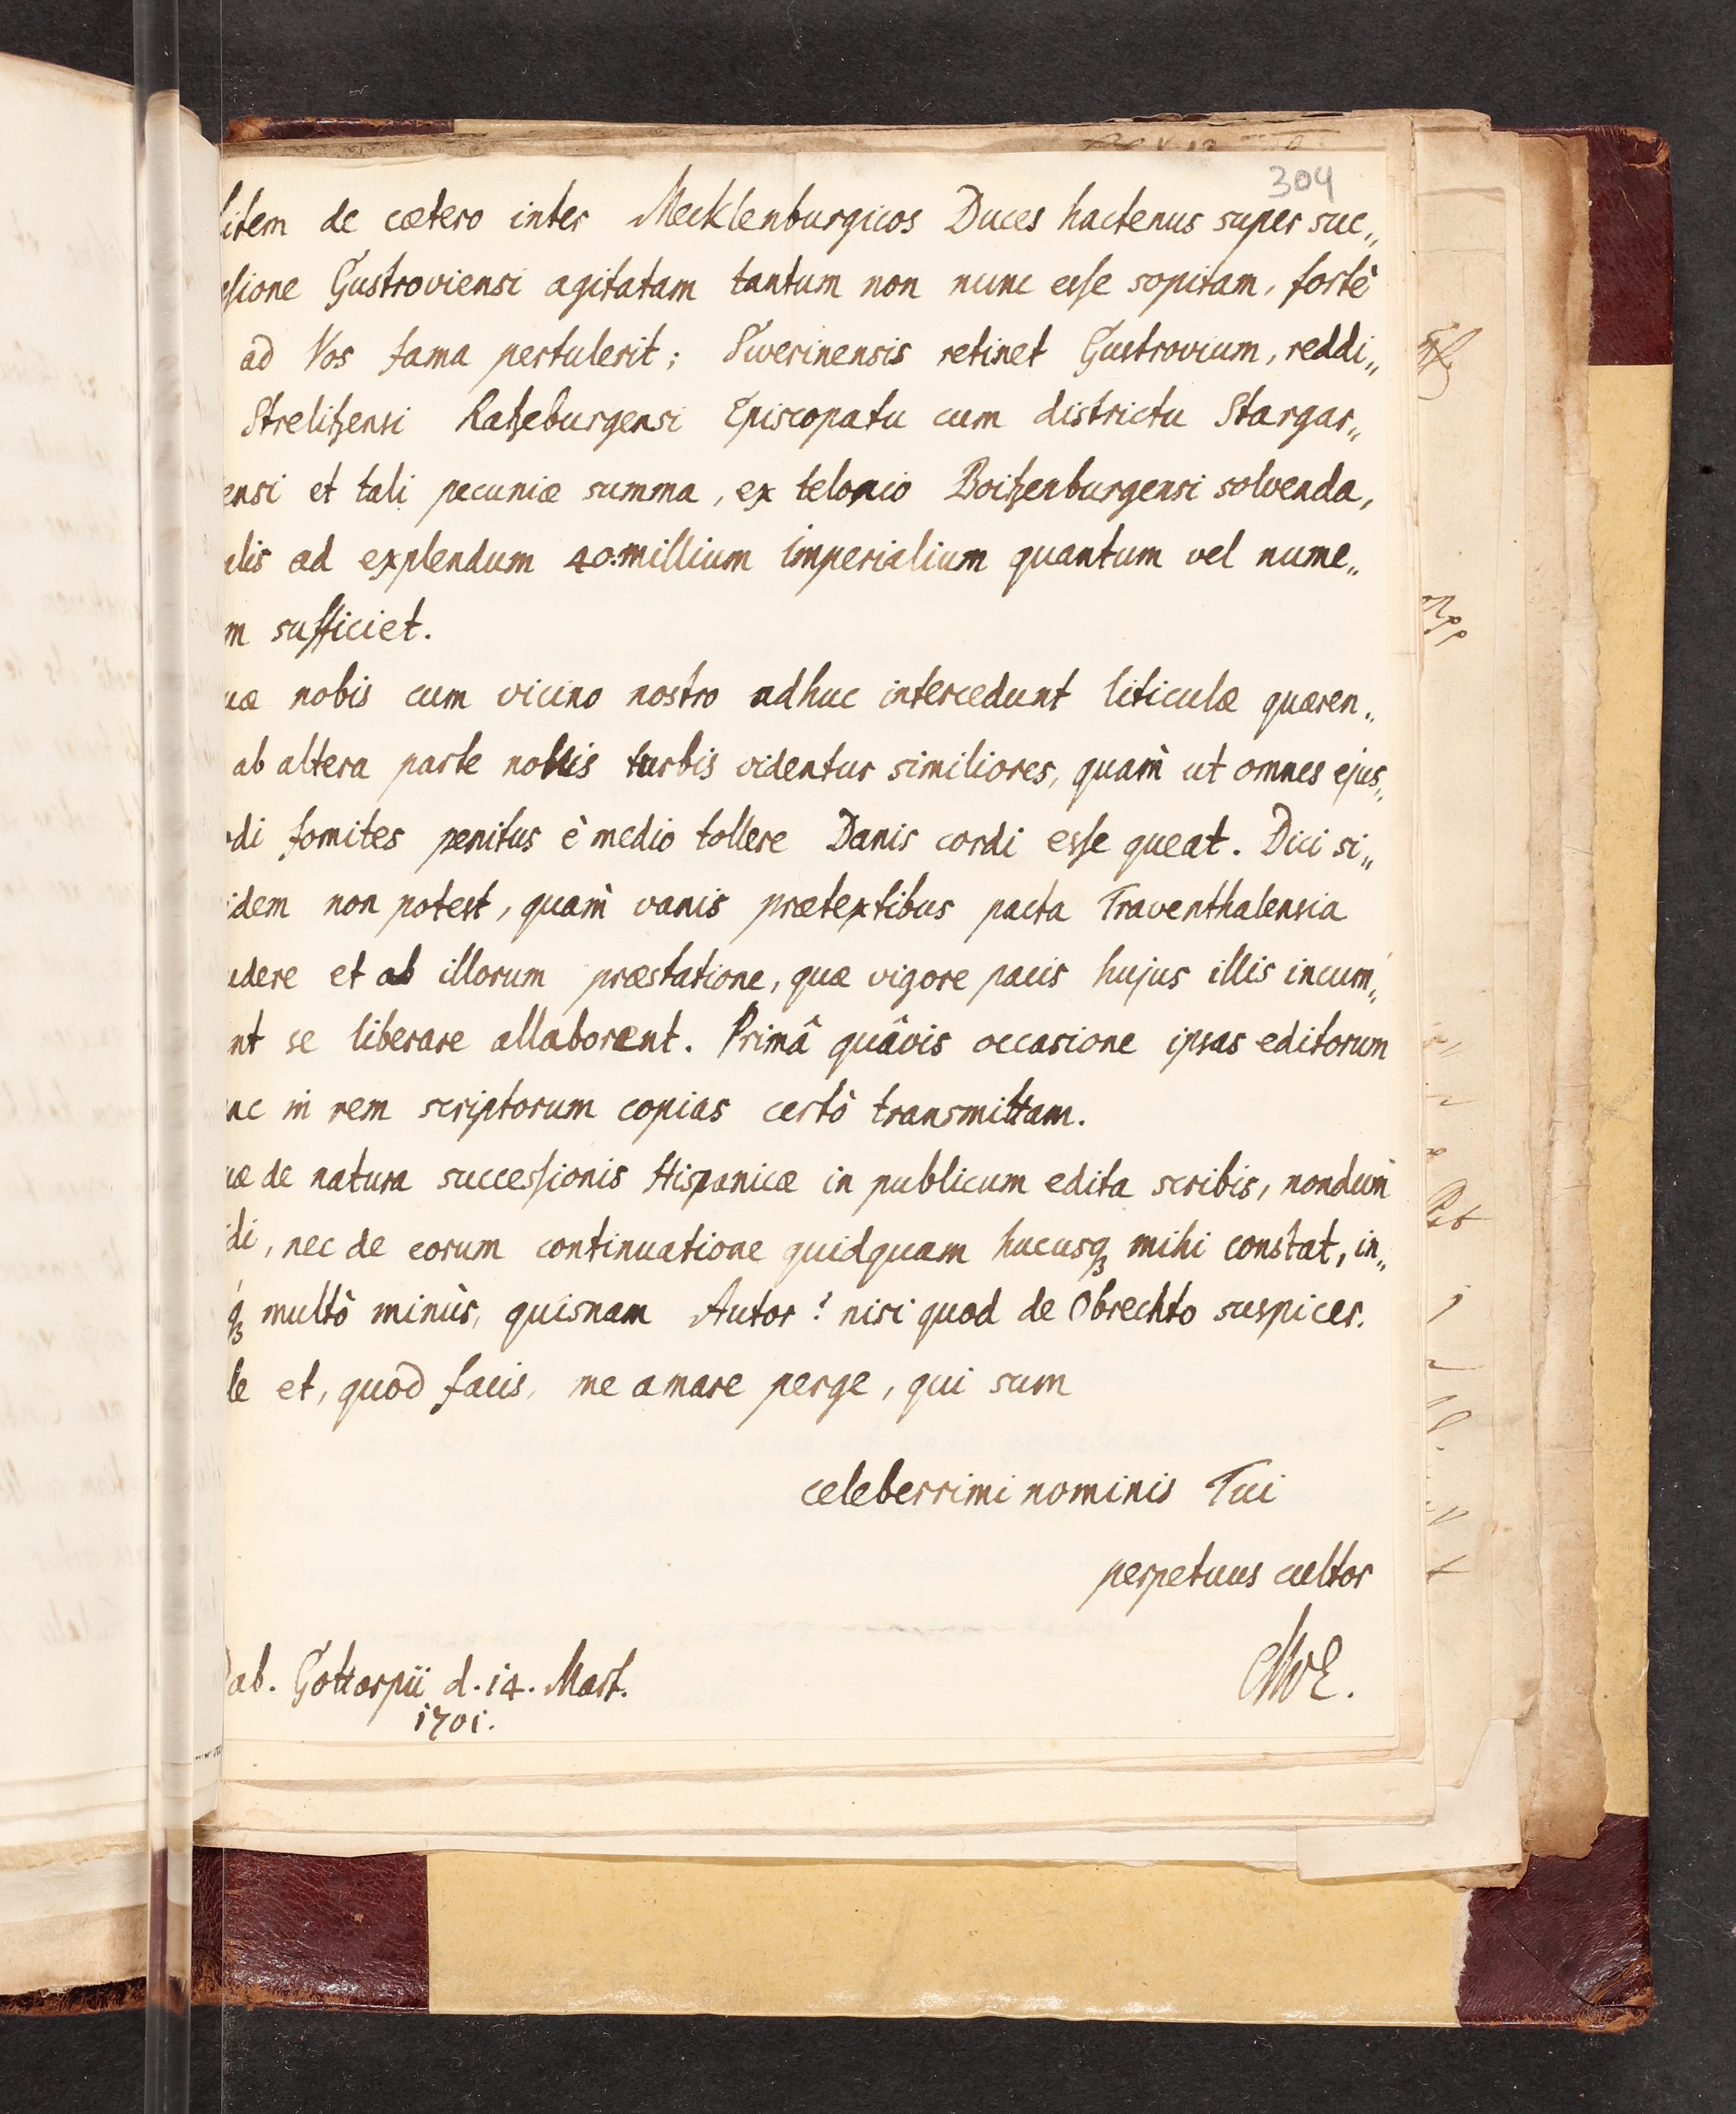 304
litem de cætero inter Mecklenburgicos Duces hactenus super suc„
essione Gustroviensi agitatam tantum non nunc esse sopitam, fortè
ad Vos fama pertulerit; Swerinensis retinet Gustrovium, reddi„
Strelitzensi Ratzeburgensi Episcopatu cum districtu Stargar„
ensi et tali pecuniæ summa, ex telonio Boitzenburgensi solvenda,
alis ad explendum 40.millium imperialium quantum vel nume„
m sufficiet.
uæ nobis cum vicino nostro adhuc intercedunt liticulæ quæren„
ab altera parte turbis videntur similiores, quam̀ ut omnes ejus„
odi fomites penitus è medio tollere Danis cordi esse queat. Dici si„
idem non potest, quam̀ vanis prætextibus pacta Traventhalensia
udere et ab illorum præstatione, quæ vigore pacis hujus illis incum„
nt se liberare allaborent. Primâ quâvis occasione ipsas editorum
ac in rem scriptorum copias certò transmittam.
uæ de natura successionis Hispanicæ in publicum edita scribis, nondum̀
di, nec de eorum continuatione quidquam hucusqꝫ mihi constat, in„
qꝫ multò minùs, quisnam Autor? nisi quod de Obrechto suspicer.
le et, quod facis, me amare perge, qui sum
celeberrimi nominis Tui
perpetuus cultor
MVE.
Dab. Gottorpii d. 14. Mart.
1701.